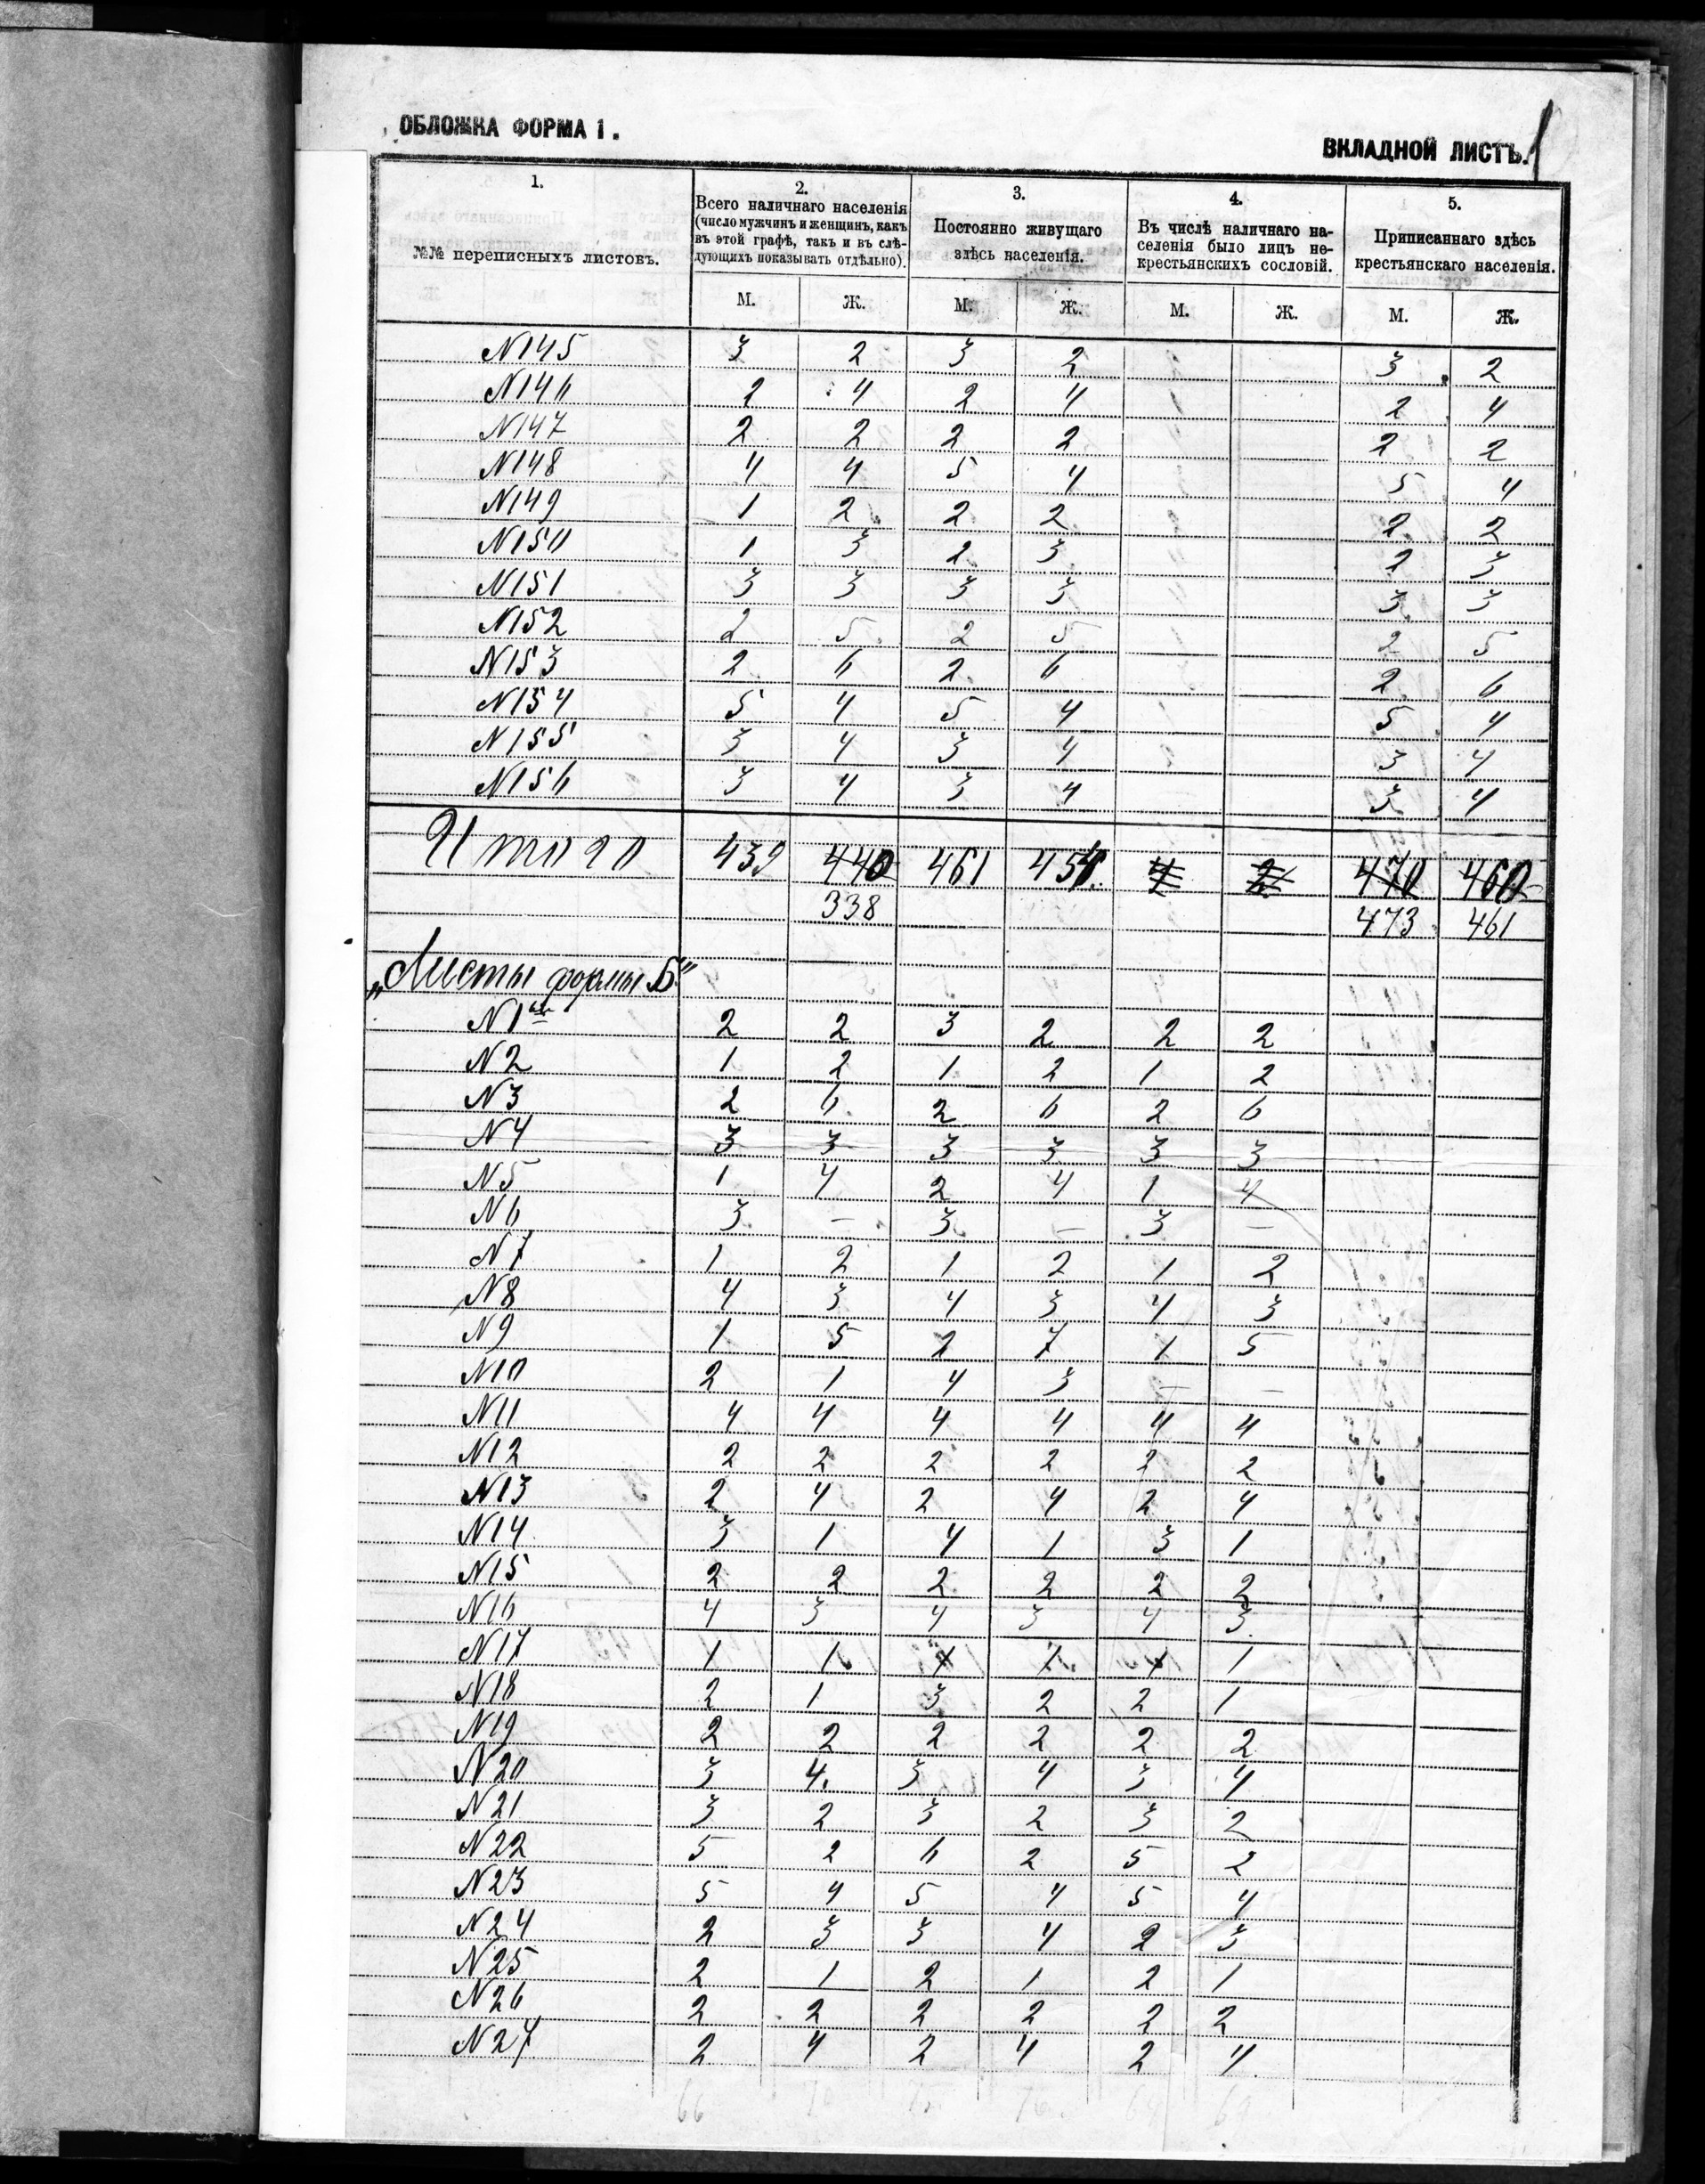 ОБЛОЖКА ФОРМА 1.
ВКЛАДНОЙ ЛИСТЪ.
1. 2. 3. 4. 5.
№№ переписныхъ листовъ.
Всего наличнаго населенія
(число мужчинъ и женщинъ, какъ
въ этой графѣ, такъ и въ слѣ-
дующихъ показывать отдѣльно).
Постоянно живущаго
здѣсь населенія.
Въ числѣ наличнаго на-
селенія было лицъ не-
крестьянскихъ сословій.
Приписаннаго здѣсь
крестьянскаго населенія.
М. Ж. М. Ж. М. Ж. М. Ж.
N145 3 2 3 2 3 2
N146 2 4 2 4 2 4
N147 2 2 2 2 2 2
N148 4 4 5 4 5 4
N149 1 2 2 2 2 2
N150 1 3 2 3 2 3
N151 3 3 3 3 3 3
N152 2 5 2 5 2 5
N153 2 6 2 6 2 6
N154 5 4 5 4 5 4
N155 3 4 3 4 3 4
N156 3 4 3 4 3 4
Итого 439 440 461 470 460
338 473 461
„Листы формы Б"
N1 2 2 3 2 2 2
N2 1 2 1 2 1 2
N3 2 6 2 6 2 6
N4 3 3 3 3 3 3
N5 1 4 2 4 1 4
N6 3 — 3 — 3 —
N7 1 2 1 2 1 2
N8 4 3 4 3 4 3
N9 1 5 2 7 1 5
N10 2 1 4 3 — —
N11 4 4 4 4 4 4
N12 2 2 2 2 2 2
N13 2 4 2 4 2 4
N14 3 1 4 1 3 1
N15 2 2 2 2 2 2
N16 4 3 4 3 4 3
N17 1 1 1 1 1 1
N18 2 1 3 2 2 1
N19 2 2 2 2 2 2
N20 3 4 3 4 3 4
N21 3 2 3 2 3 2
N22 5 2 6 2 5 2
N23 5 4 5 4 5 4
N24 2 3 3 4 2 3
N25 2 1 2 1 2 1
N26 2 2 2 2 2 2
N27 2 4 2 4 2 4